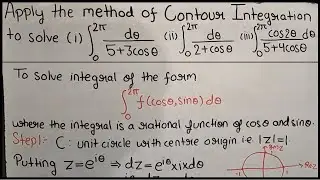 Apply the method of Contour Integration
to solve (i) ∫₀^2π dθ/(5+3cosθ) (ii) ∫₀^2π dθ/(2+cosθ) (iii) ∫₀^2π cos2θ/(5+4cosθ) dθ
To solve integral of the form
∫₀^2π f(cosθ, sinθ) dθ
where the integral is a rational function of cosθ and sinθ.
Step1:- C : unit circle with centre origin i.e. |z|=1
Putting z=e^iθ ⇒ dz=e^iθ x i x dθ